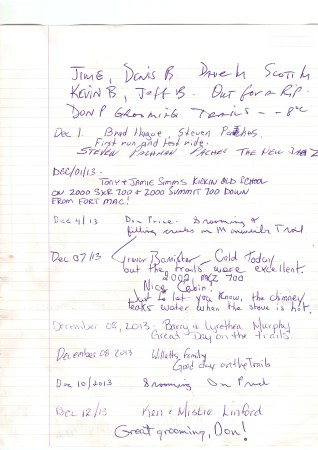 Jim E, Denis B Dave M Scott M
Kevin B, Jeff B. Out for a Rip.
Don P Grooming Trails -- 8°C
Dec 1. Brad Hague, Steven
First run and test ride.
STEVEN THE NEW
DEC/01/13.
TONY & JAMIE SIMMS KICKIN OLD SCHOOL
ON 2000 SXR 700 & 2000 SUMMIT 700 DOWN
FROM FORT MAC!
Dec 4/13 Don Price. Grooming &
filling on Trail
Dec 07/13 Trevor Banister Cold Today
but the trails were excellent.
2002 MXZ 700
Nice Cabin!
Just to let you know, the chimney
leaks water when the stove is hot.
December 08, 2013. Barry & Murphy
Great Day on the trails
December 08 2013 Willetts Family
Good day on the Trails
Dec 10/2013 Grooming Don
Dec 12/13 Ken & Linford
Great grooming, Don!